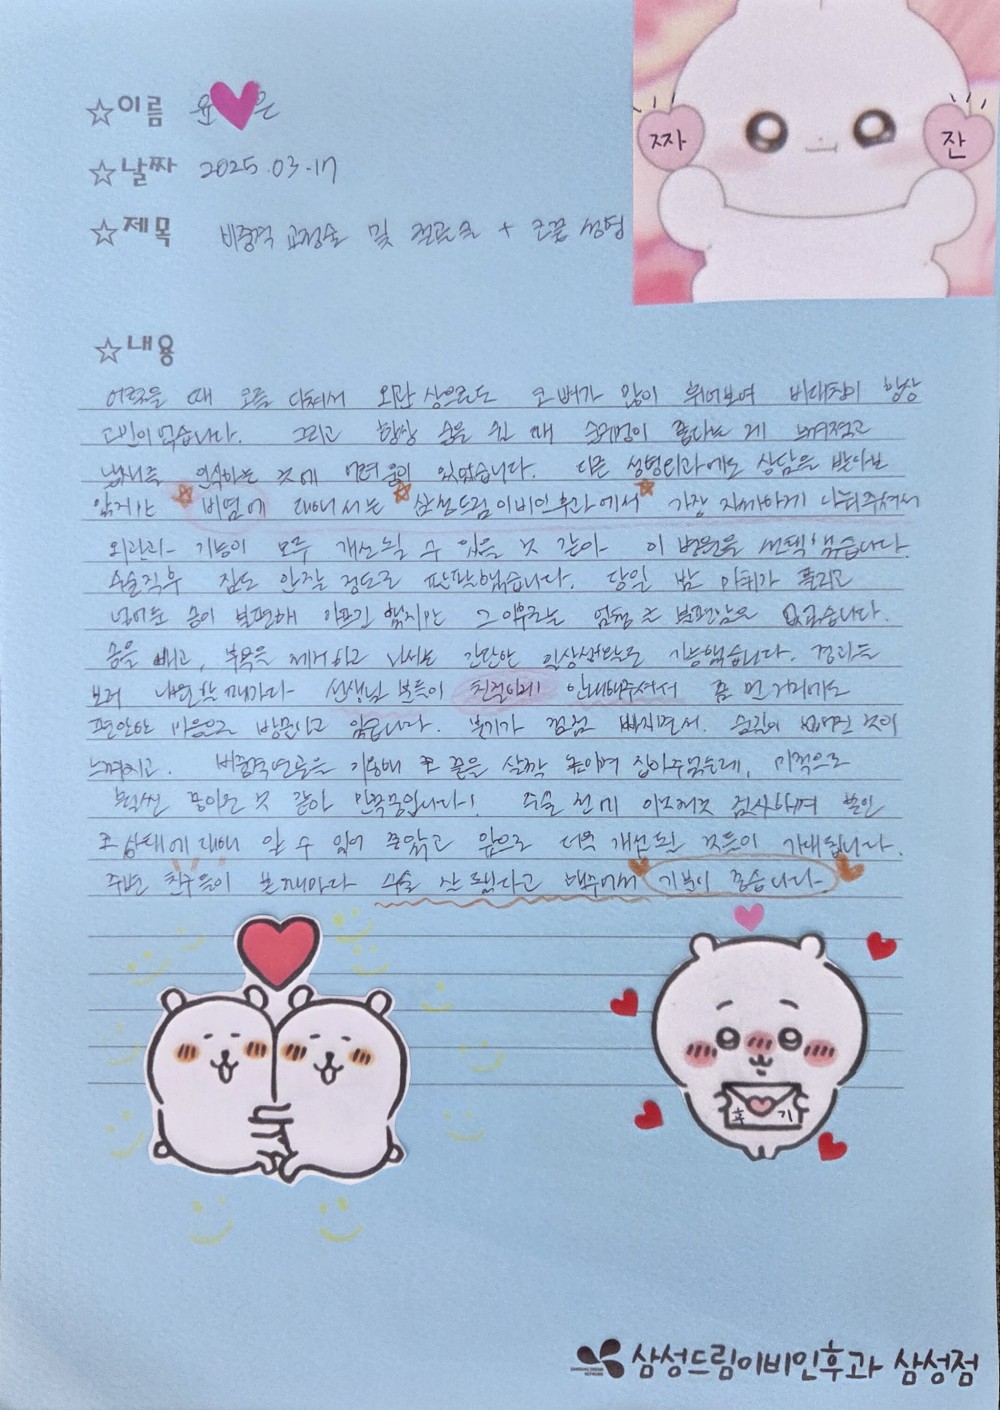 짜
잔
☆이름 윤 은
☆날짜 2025.03.17
☆제목 비중격 교정술 및 절골술 + 코끝 성형
☆내용
어렸을 때 코를 다쳐서 외관 상으로도 코 뼈가 많이 휘어보여 비대칭이 항상
고민이었습니다. 그리고 항상 숨을 쉴 때 숨구멍이 좁다는 게 느껴졌고
냄새를 인식하는 것에 어려움이 있었습니다. 다른 성형외과에도 상담을 받아보
았지만 비염에 대해서는 삼성드림이비인후과에서 가장 자세하게 나눠주셔서
외관과 기능이 모두 개선될 수 있을 것 같아 이 병원을 선택했습니다.
수술직후 잠도 안잘 정도로 판판했습니다. 당일 밤 마취가 풀리고
넣어둔 솜이 불편해 아프긴 했지만 그 이후로는 엄청 큰 불편함은 없었습니다.
솜을 빼고, 부목을 제거하고 나서는 간단한 일상생활도 가능했습니다. 경과를
보러 내원할 때마다 선생님 분들이 친절하게 안내해주셔서 좀 먼 거리에도
편안한 마음으로 방문하고 있습니다. 붓기가 점점 빠지면서, 숨길이 넓어진 것이
느껴지고. 비중격연골을 사용해 코 끝을 살짝 높이며 잡아주었는데, 미적으로
훨씬 좋아진 것 같아 만족중입니다! 수술 전에 이것저것 검사하며 본인
코상태에 대해 알 수 있어 좋았고 앞으로 더욱 개선될 것들이 기대됩니다.
주변 친구들이 볼 때마다 수술 잘 됐다고 해주어서 기분이 좋습니다
후 기
삼성드림이비인후과 삼성점